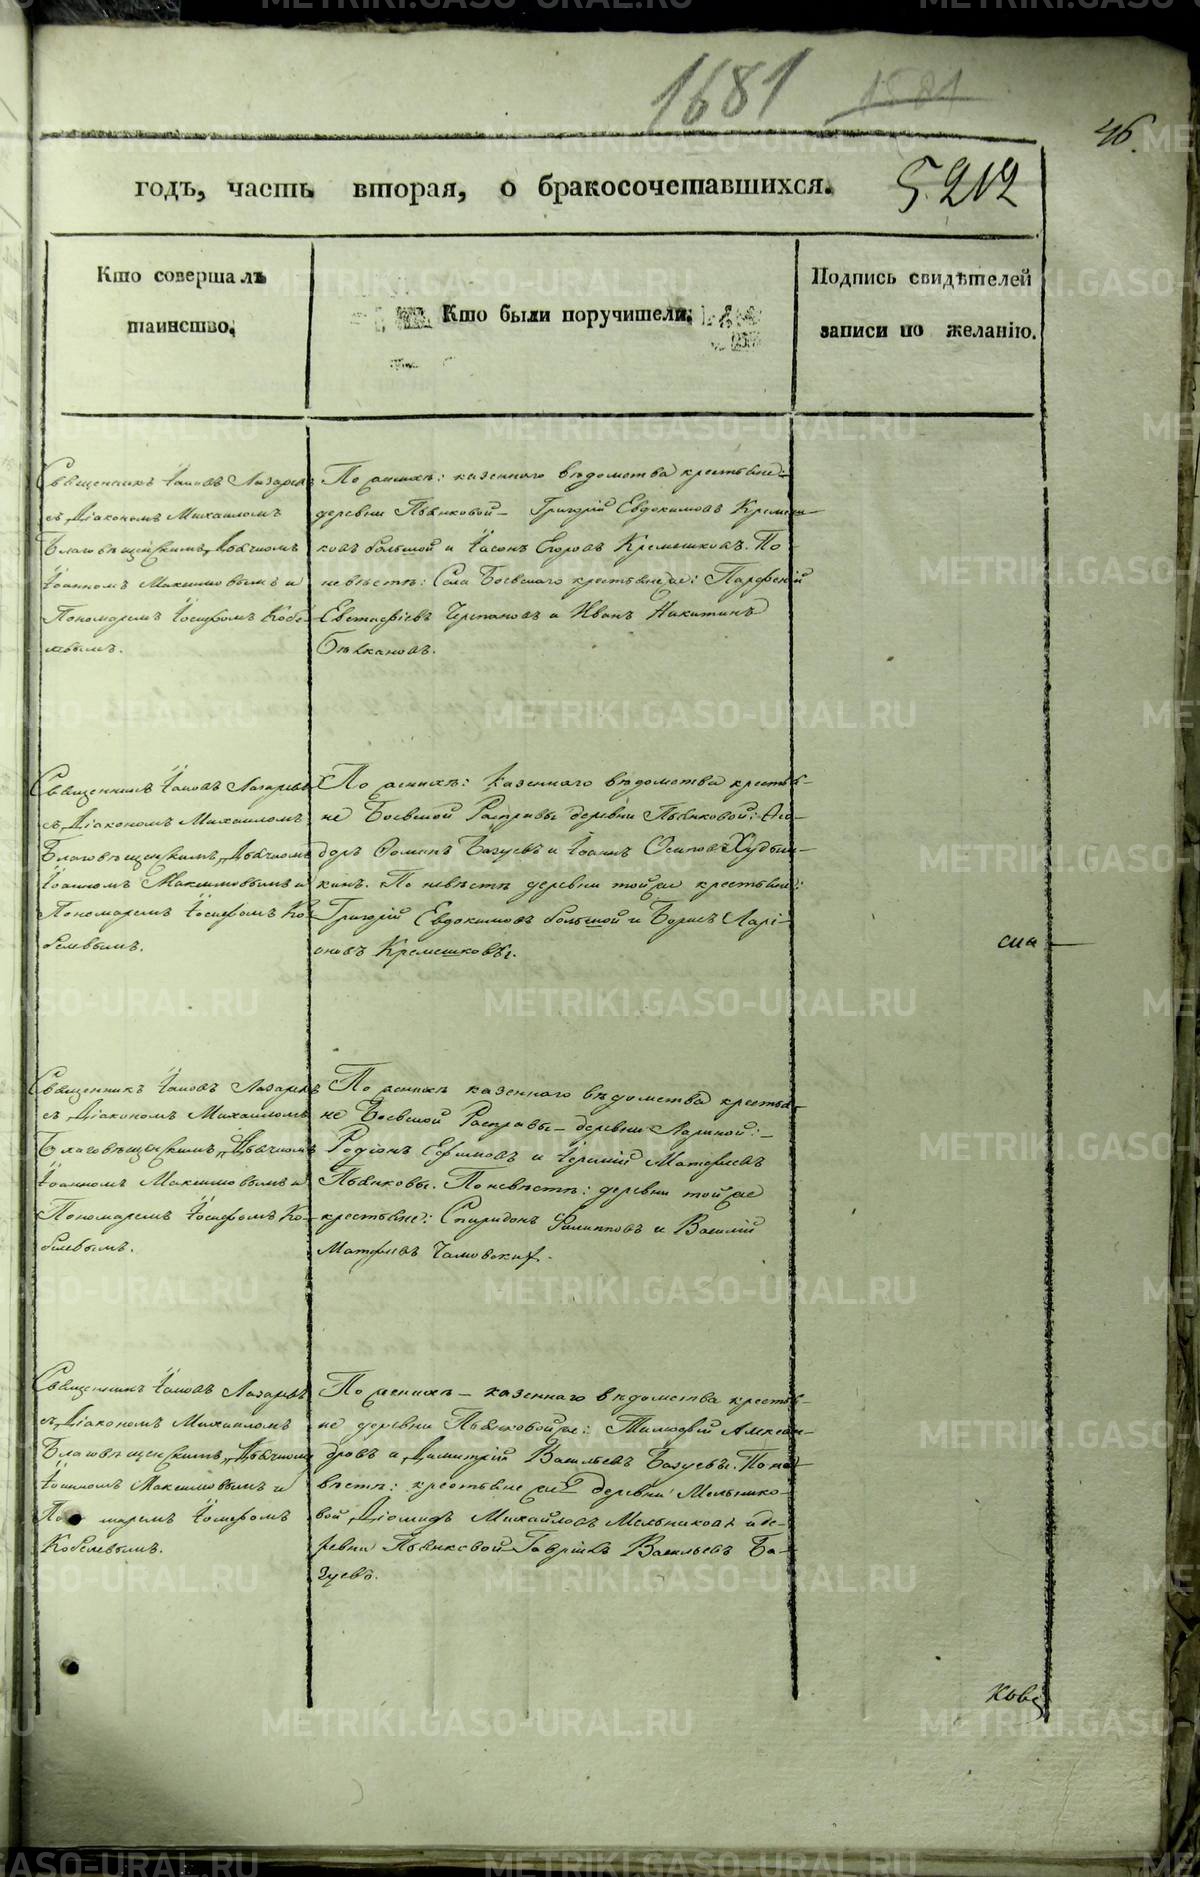 1681 1581
46.
годъ, часть вторая, о бракосочетавшихся.
5.212
Кто совершалъ
таинство.
Кто были поручители.
Подпись свидѣтелей
записи по желанію.
Священникъ Іаковъ Лазаревъ
съ Діакономъ Михаиломъ
Благовѣщенскимъ, Дьячкомъ
Іоанномъ Максимовымъ и
Пономаремъ Іосифомъ Кобе-
левымъ.
По женихѣ: казеннаго вѣдомства крестьяне:
деревни Пьянковой – Григорій Евдокимовъ Кремеш-
ковъ большой и Іасонъ Егоровъ Кремешковъ. По
невѣстѣ: Села Боевскаго крестьяне же: Парфеній
Евстафіевъ Черпановъ и Иванъ Никитинъ
Священникъ Іаковъ Лазаревъ
съ Діакономъ Михаиломъ
Благовѣщенскимъ, Дьячкомъ
Іоанномъ Максимовымъ и
Пономаремъ Іосифомъ Ко-
белевымъ.
По женихѣ: Казеннаго вѣдомства крестья-
не Боевской Расправы деревни Пьянковой:
Базуевъ и Іоаннъ Осиповъ
По невѣстѣ деревни той же крестьяне:
Григорій Евдокимовъ большой и Борисъ Ларі-
оновъ Кремешковы.
сма
Священникъ Іаковъ Лазаревъ
съ Діакономъ Михаиломъ
Благовѣщенскимъ, Дьячкомъ
Іоанномъ Максимовымъ и
Пономаремъ Іосифомъ Ко-
белевымъ.
По женихѣ казеннаго вѣдомства крестья-
не Боевской Расправы – деревни Лариной: –
Родіонъ Ефимовъ и Іеремій Матфѣевъ
Пьянковы. По невѣстѣ: деревни той же
крестьяне: Спиридонъ Филипповъ и Василій
Матфѣевъ
Священникъ Іаковъ Лазаревъ
съ Діакономъ Михаиломъ
Благовѣщенскимъ, Дьячкомъ
Іоанномъ Максимовымъ и
Пономаремъ Іосифомъ
Кобелевымъ.
По женихѣ – казеннаго вѣдомства крестья-
не деревни Пьянковой же: Тимофей Алексан-
дровъ и Димитрій Васильевъ Базуевы. По не-
вѣстѣ: крестьяне же деревни Мельнико-
вой Діомидъ Михайловъ Мельниковъ и де-
ревни Пьянковой Гавріилъ Васильевъ Ба-
зуевъ.
ковъ
METRIKI.GASO-URAL.RU